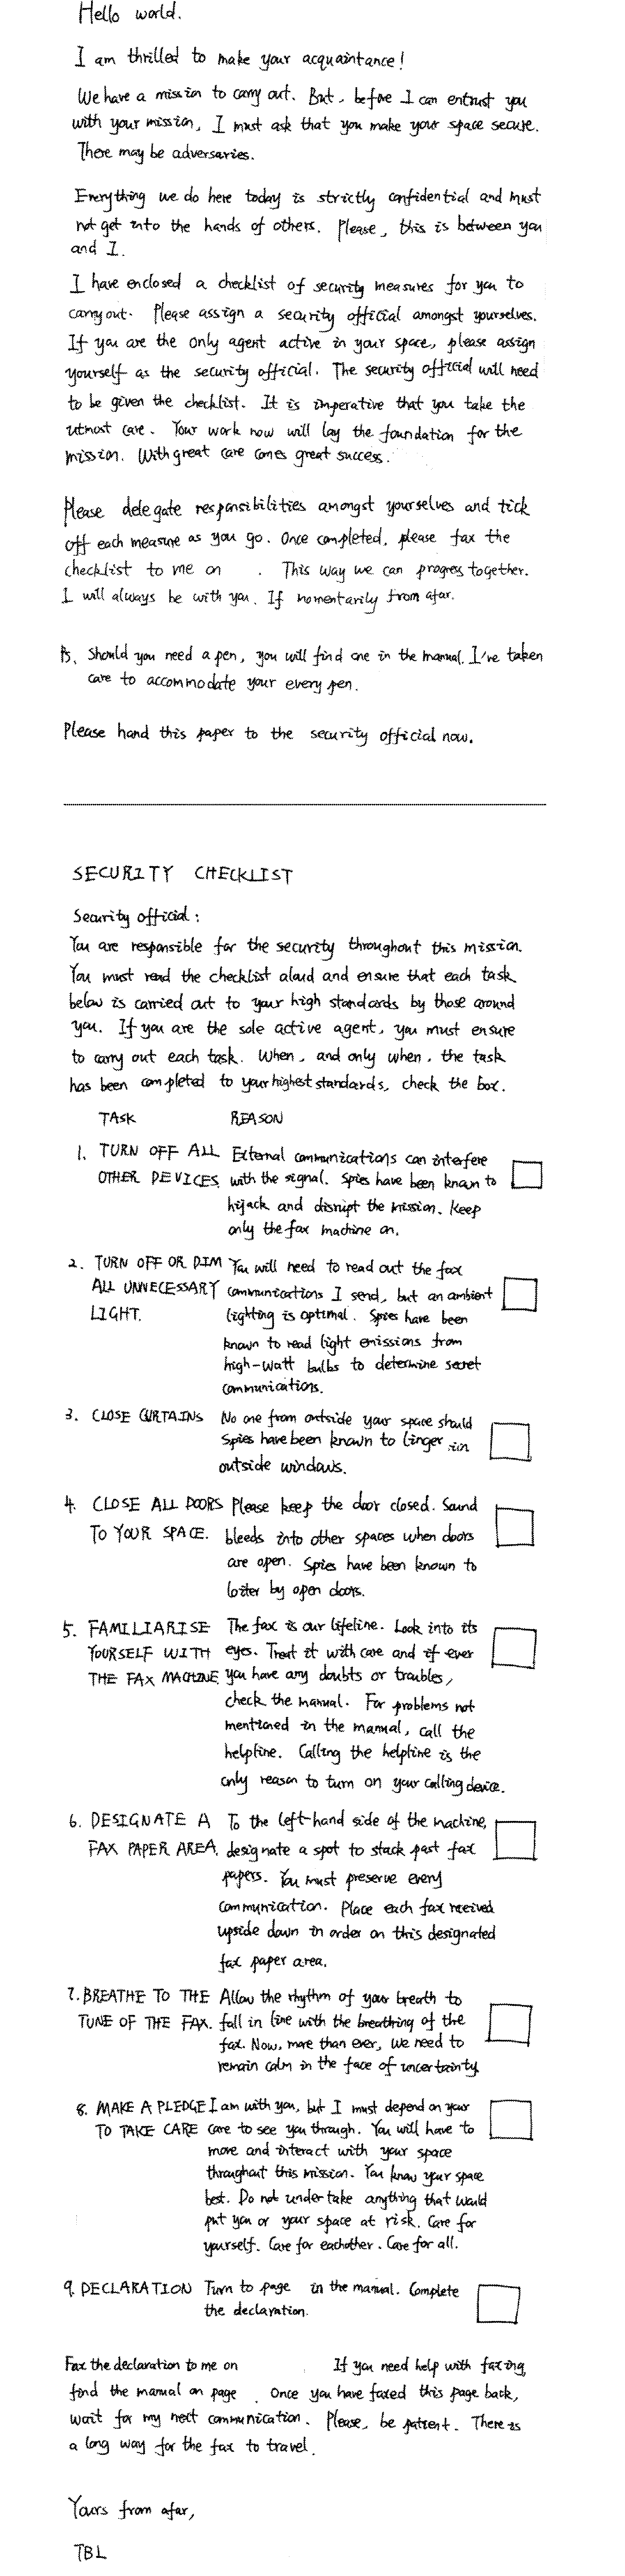 Hello world.
I am thrilled to make your acquaintance!
We have a mission to carry out. But, before I can entrust you
with your mission, I must ask that you make your space secure.
There may be adversaries.
Everything we do here today is strictly confidential and must
not get into the hands of others. Please, this is between you
and I.
I have enclosed a checklist of security measures for you to
carry out. Please assign a security official amongst yourselves.
If you are the only agent active in your space, please assign
yourself as the security official. The security official will need
to be given the checklist. It is imperative that you take the
utmost care. Your work now will lay the foundation for the
mission. With great care comes great success.
Please delegate responsibilities amongst yourselves and tick
off each measure as you go. Once completed, please fax the
checklist to me on . This way we can progress together.
I will always be with you. If momentarily from afar.
Ps. Should you need a pen, you will find one in the manual. I've taken
care to accommodate your every pen.
Please hand this paper to the security official now.
SECURITY CHECKLIST
Security official:
You are responsible for the security throughout this mission.
You must read the checklist aloud and ensure that each task
below is carried out to your high standards by those around
you. If you are the sole active agent, you must ensure
to carry out each task. When, and only when, the task
has been completed to your highest standards, check the box.
TASK REASON
1. TURN OFF ALL External communications can interfere
OTHER DEVICES with the signal. Spies have been known to
hijack and disrupt the mission. Keep
only the fax machine on.
2. TURN OFF OR DIM You will need to read out the fax
ALL UNNECESSARY communications I send, but an ambient
LIGHT. lighting is optimal. Spies have been
known to read light emissions from
high-watt bulbs to determine secret
communications.
3. CLOSE CURTAINS No one from outside your space should
Spies have been known to linger in
outside windows.
4. CLOSE ALL DOORS Please keep the door closed. Sound
TO YOUR SPACE. bleeds into other spaces when doors
are open. Spies have been known to
loiter by open doors.
5. FAMILIARISE The fax is our lifeline. Look into its
YOURSELF WITH eyes. Treat it with care and if ever
THE FAX MACHINE. you have any doubts or troubles,
check the manual. For problems not
mentioned in the manual, call the
helpline. Calling the helpline is the
only reason to turn on your calling device.
6. DESIGNATE A To the left-hand side of the machine,
FAX PAPER AREA. designate a spot to stack past fax
papers. You must preserve every
communication. Place each fax received
upside down in order on this designated
fax paper area.
7. BREATHE TO THE Allow the rhythm of your breath to
TUNE OF THE FAX. fall in line with the breathing of the
fax. Now, more than ever, we need to
remain calm in the face of uncertainty
8. MAKE A PLEDGE I am with you, but I must depend on your
TO TAKE CARE care to see you through. You will have to
move and interact with your space
throughout this mission. You know your space
best. Do not undertake anything that would
put you or your space at risk. Care for
yourself. Care for eachother. Care for all.
9. DECLARATION Turn to page in the manual. Complete
the declaration.
Fax the declaration to me on If you need help with faxing,
find the manual on page . Once you have faxed this page back,
wait for my next communication. Please, be patient. There is
a long way for the fax to travel.
Yours from afar,
TBL